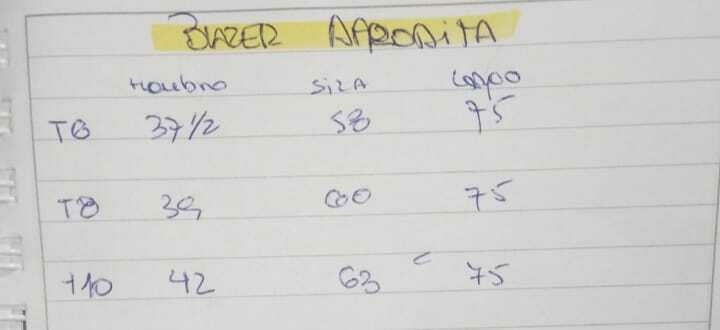 BLAZER AFRODITA
Hombro SISA Largo
T6 37 1/2 58 75
T8 39 60 75
T10 42 63 75